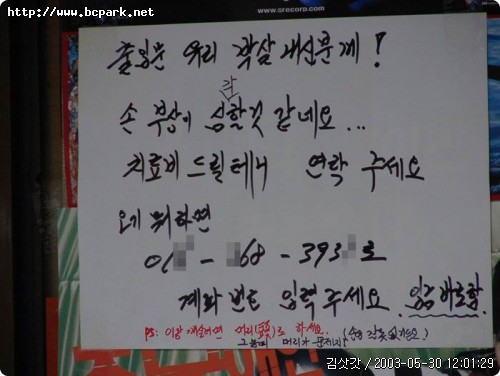 http://www.bcpark.net
www.srecorp.com
출입문 유리 박살 내신분께!
손 부상이 심각할것 같네요...
치료비 드릴테니 연락 주세요
오기 뭐하면
01 - 68 - 393 로
계좌 번호 입력 주세요. 입금 바로함
PS: 이왕 깨실려면 머리로 하세요. (손은 잘못없거든요)
머리가
김삿갓 / 2003-05-30 12:01:29